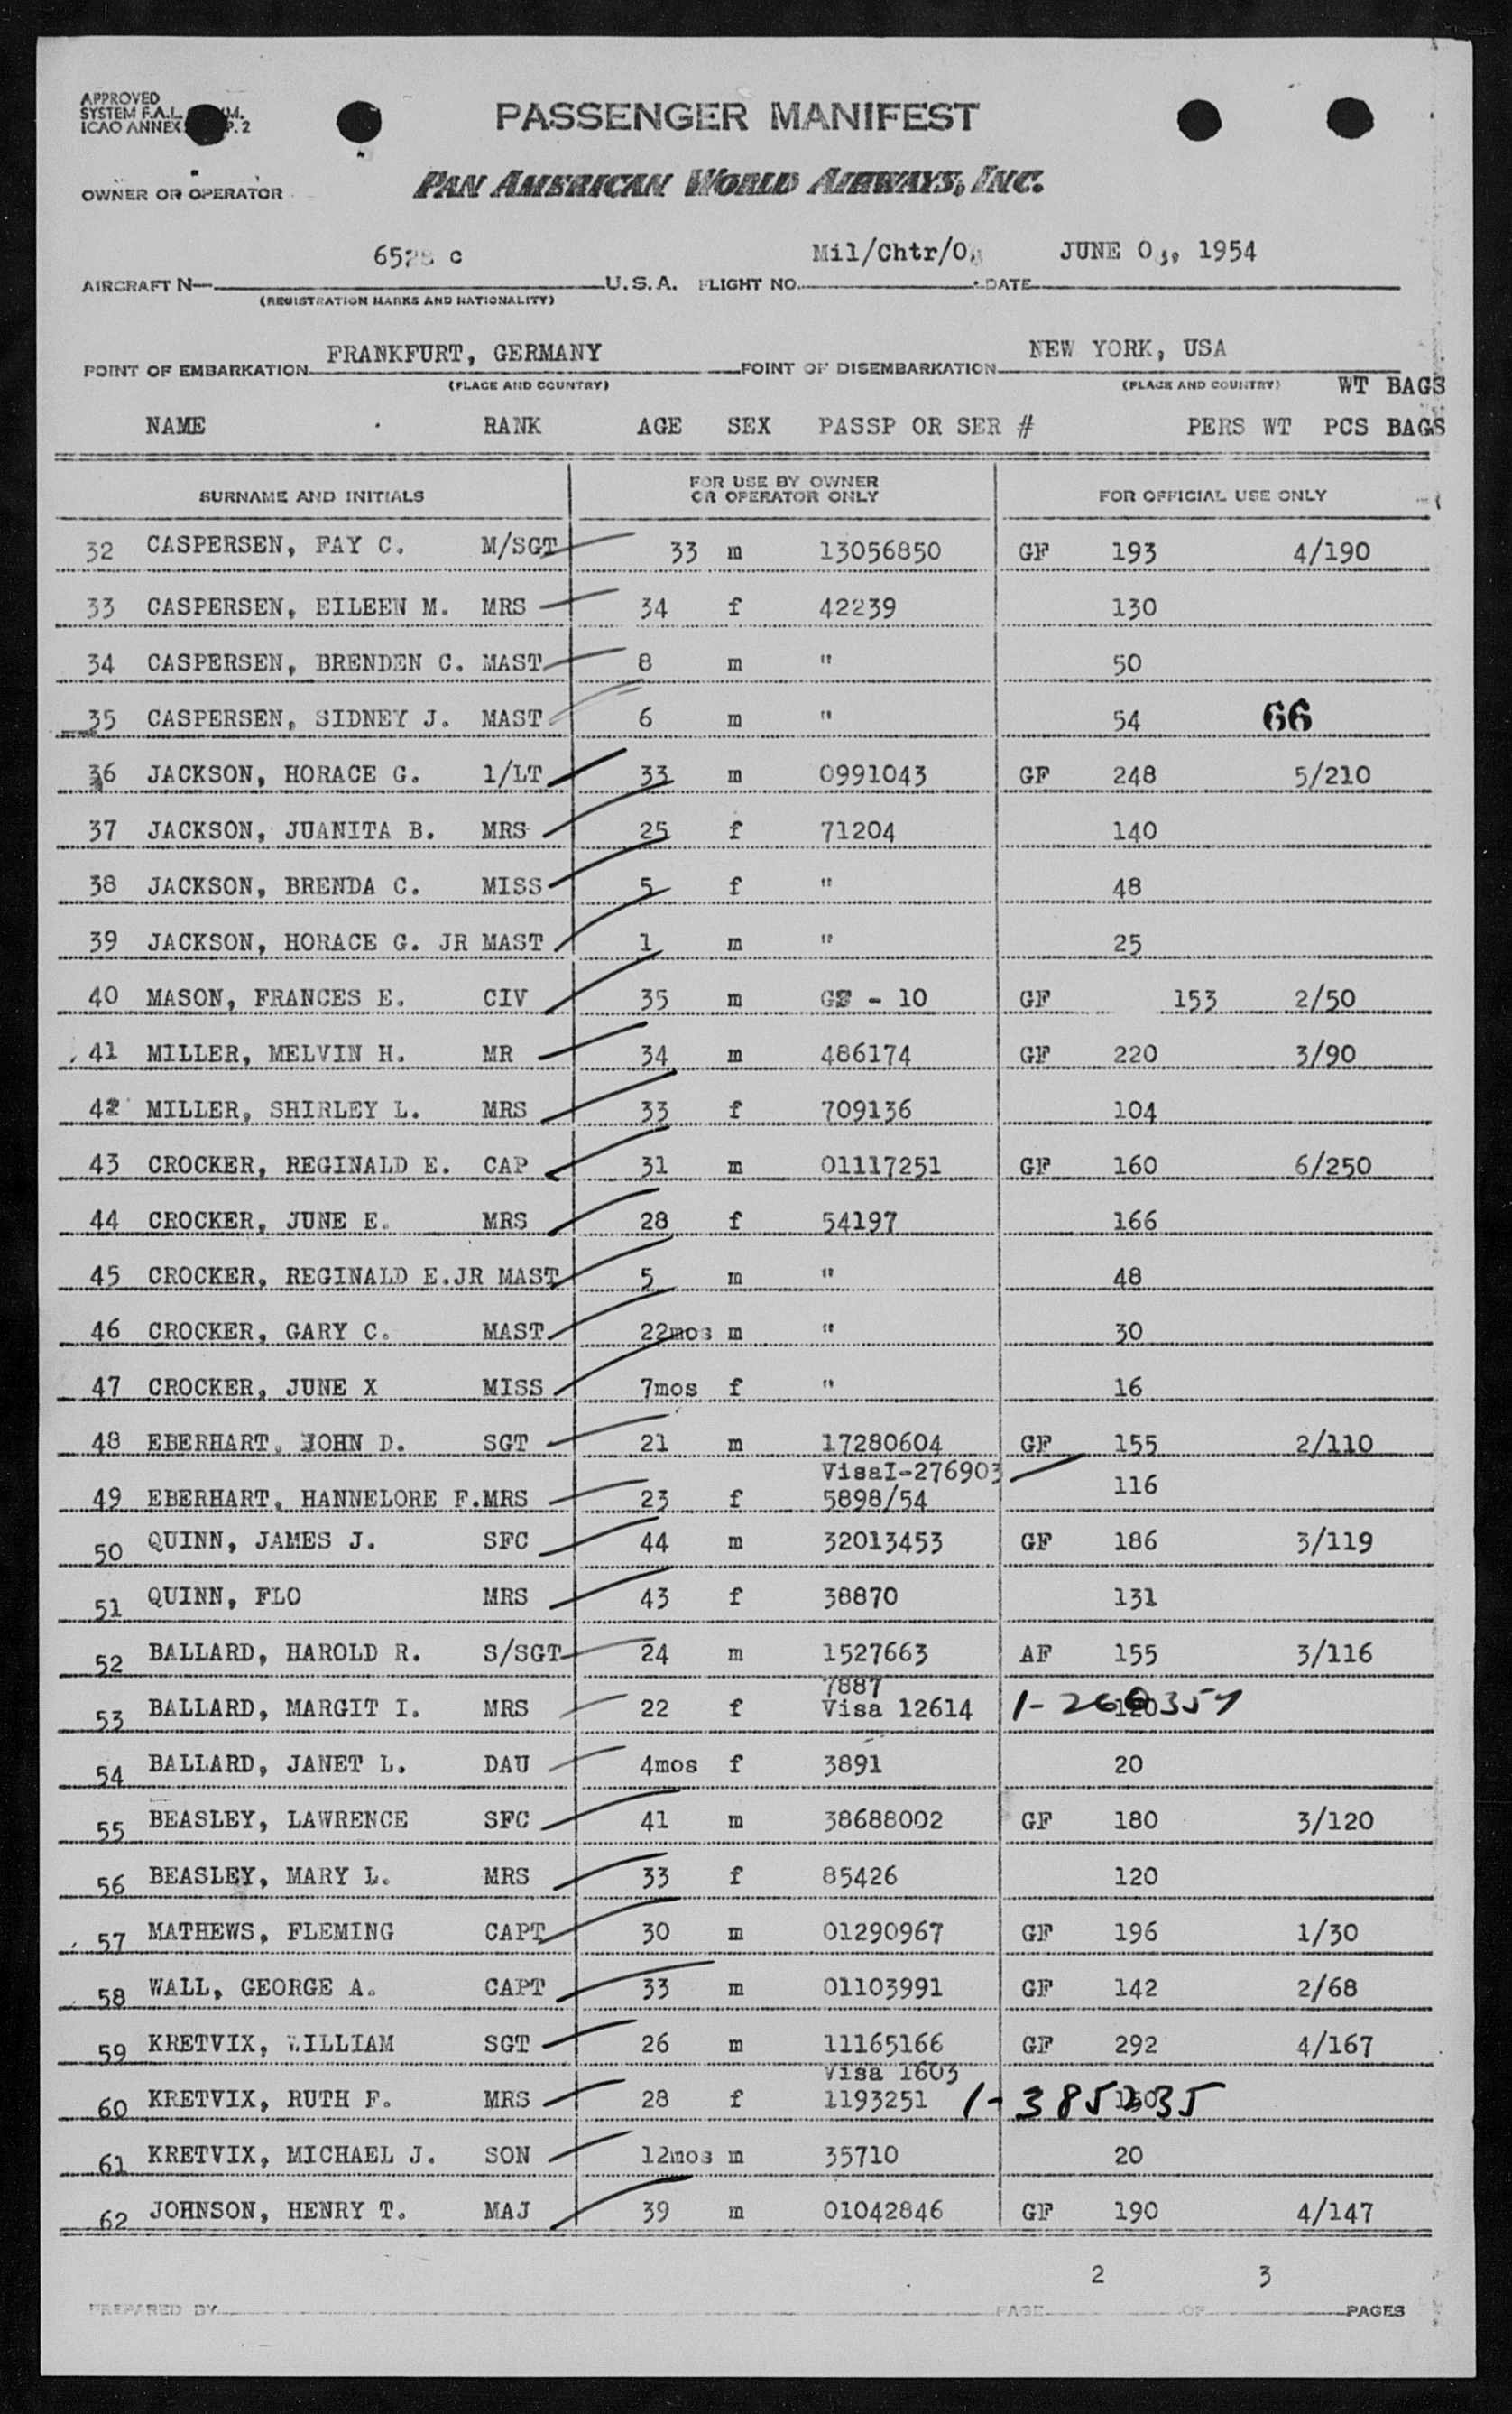 APPROVED
SYSTEM F.A.L.
ICAO ANNEX P. 2
PASSENGER MANIFEST
OWNER OR OPERATOR PAN AMERICAN WORLD AIRWAYS, INC.
AIRCRAFT N— C U.S.A. FLIGHT NO. Mil/Chtr/ DATE JUNE 1954
(REGISTRATION MARKS AND NATIONALITY)
POINT OF EMBARKATION FRANKFURT, GERMANY POINT OF DISEMBARKATION NEW YORK, USA
(PLACE AND COUNTRY) (PLACE AND COUNTRY) WT BAGS
NAME RANK AGE SEX PASSP OR SER # PERS WT PCS BAGS
SURNAME AND INITIALS FOR USE BY OWNER OR OPERATOR ONLY FOR OFFICIAL USE ONLY
32 CASPERSEN, FAY C. M/SGT 33 m 13056850 GF 193 4/190
33 CASPERSEN, EILEEN M. MRS 34 f 42239 130
34 CASPERSEN, BRENDEN C. MAST 8 m " 50
35 CASPERSEN, SIDNEY J. MAST 6 m " 54 66
36 JACKSON, HORACE G. 1/LT 33 m 0991043 GF 248 5/210
37 JACKSON, JUANITA B. MRS 25 f 71204 140
38 JACKSON, BRENDA C. MISS 5 f " 48
39 JACKSON, HORACE G. JR MAST 1 m " 25
40 MASON, FRANCES E. CIV 35 m GS - 10 GF 153 2/50
41 MILLER, MELVIN H. MR 34 m 486174 GF 220 3/90
42 MILLER, SHIRLEY L. MRS 33 f 709136 104
43 CROCKER, REGINALD E. CAP 31 m 01117251 GF 160 6/250
44 CROCKER, JUNE E. MRS 28 f 54197 166
45 CROCKER, REGINALD E.JR MAST 5 m " 48
46 CROCKER, GARY C. MAST 22mos m " 30
47 CROCKER, JUNE X MISS 7mos f " 16
48 EBERHART, JOHN D. SGT 21 m 17280604 GF 155 2/110
VisaI-276903
49 EBERHART, HANNELORE F.MRS 23 f 5898/54 116
50 QUINN, JAMES J. SFC 44 m 32013453 GF 186 3/119
51 QUINN, FLO MRS 43 f 38870 131
52 BALLARD, HAROLD R. S/SGT 24 m 1527663 AF 155 3/116
7887
53 BALLARD, MARGIT I. MRS 22 f Visa 12614
54 BALLARD, JANET L. DAU 4mos f 3891 20
55 BEASLEY, LAWRENCE SFC 41 m 38688002 GF 180 3/120
56 BEASLEY, MARY L. MRS 33 f 85426 120
57 MATHEWS, FLEMING CAPT 30 m 01290967 GF 196 1/30
58 WALL, GEORGE A. CAPT 33 m 01103991 GF 142 2/68
59 KRETVIX, WILLIAM SGT 26 m 11165166 GF 292 4/167
Visa 1603
60 KRETVIX, RUTH F. MRS 28 f 1193251 1-385235
61 KRETVIX, MICHAEL J. SON 12mos m 35710 20
62 JOHNSON, HENRY T. MAJ 39 m 01042846 GF 190 4/147
PREPARED BY PAGE 2 OF 3 PAGES